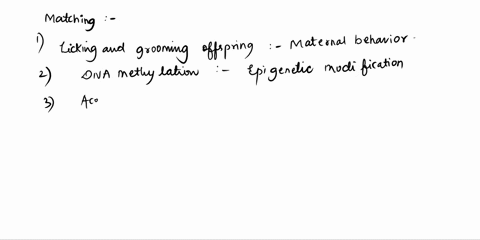 Matching :-
1) Licking and grooming offspring :- Maternal behavior.
2) DNA methylation :- Epigenetic modification
3) Ac